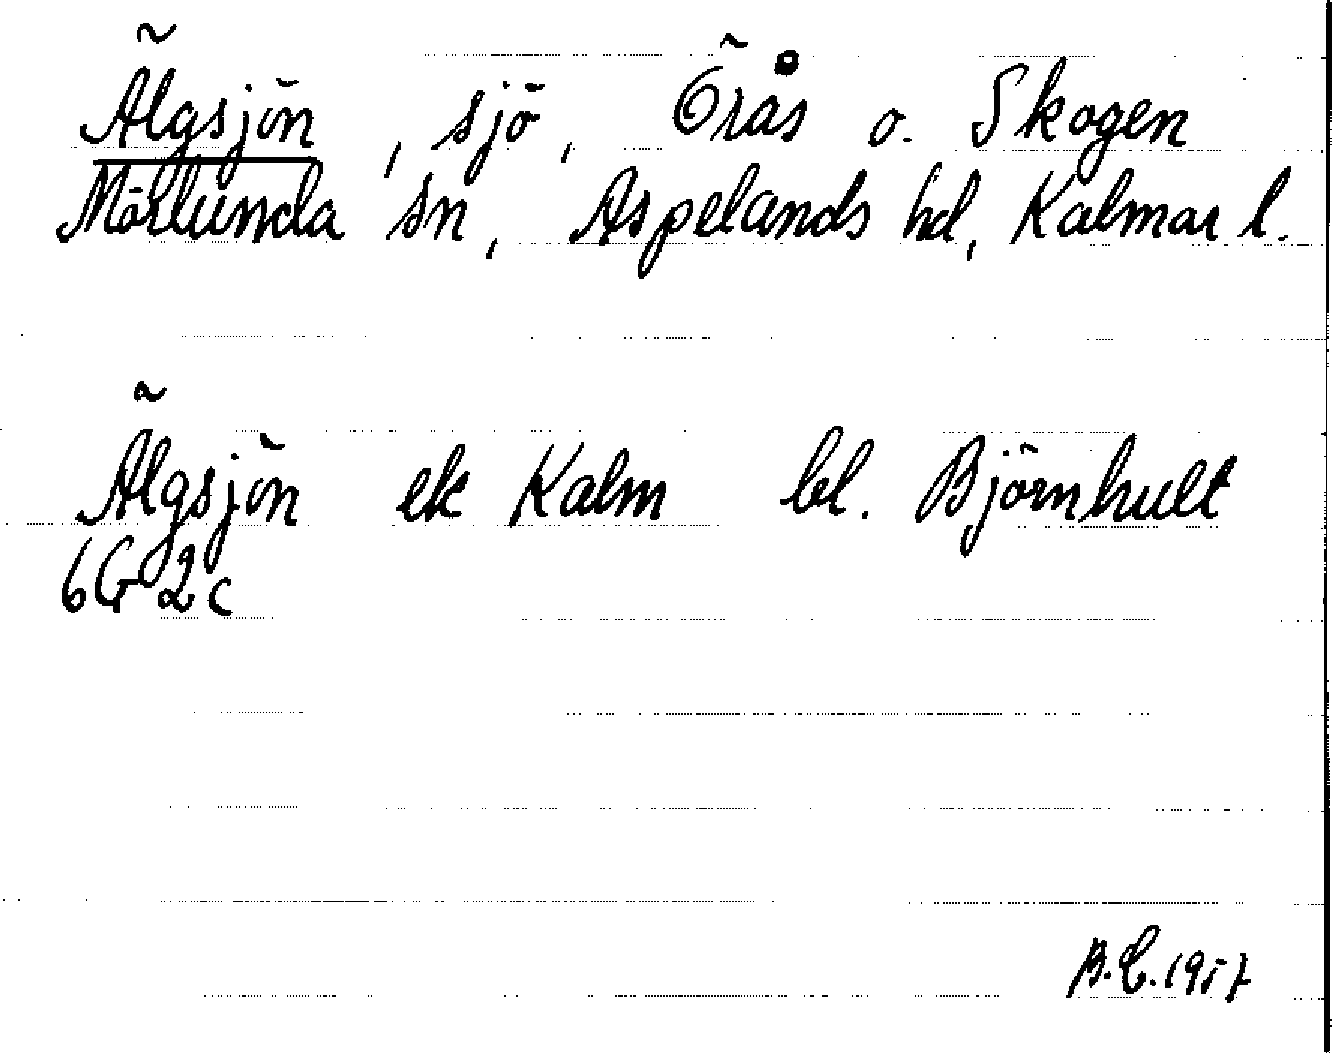 Älgsjön, sjö, Örås o. Skogen
Mörlunda sn, Aspelands hd, Kalmar l.
Älgsjön ek Kalm bl. Björnhult
6G 2c